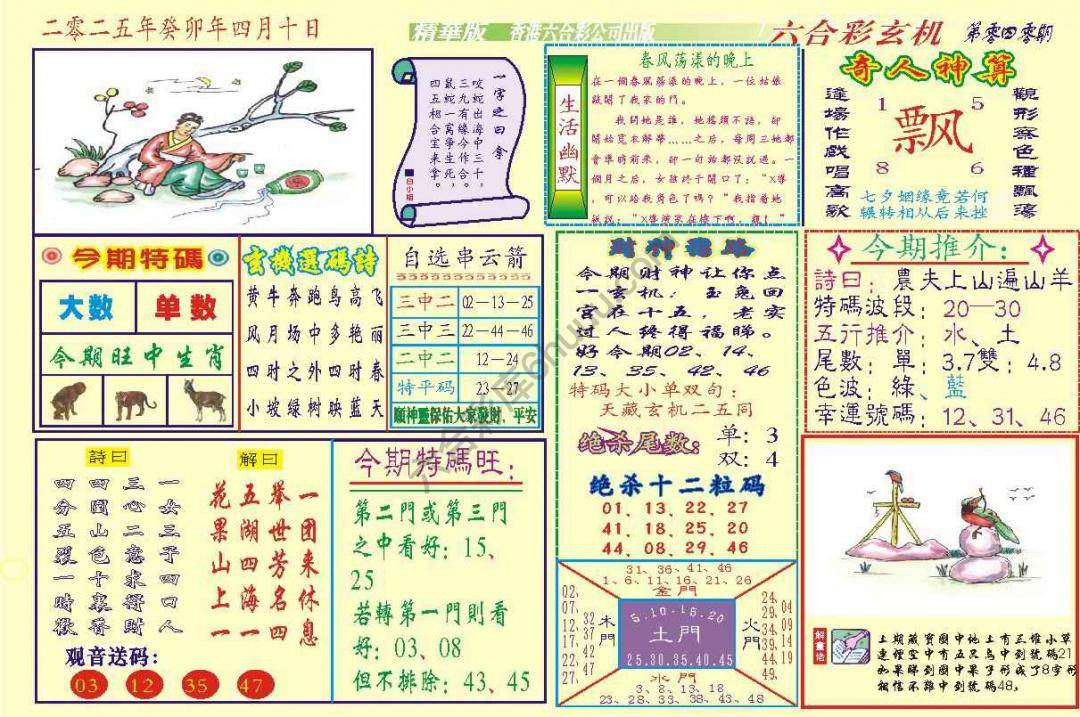 二零二五年癸卯年四月十日
精華版 香港六合彩公司出版
六合彩玄机 第零四零期
一字之曰拿
咬蛇出海中三十。
三九有緣今作合。
鼠蛇一窩爭生死。
四五相合宝来拿。
白小姐
生活幽默
春风荡漾的晚上
在一個春風蕩漾的晚上，一位姑娘
敲開了我家的門。
我問她是誰，她搖頭不語，卻
開始寬衣解帶……之后，每周三她都
會準時前來，卻一句話都没説過。一
個月之后，女孩終于開口了："X導
，可以給我角色了嗎？"我指着她
奇人神算
逢場作戲唱高歌
1 5
飘风
8 6
觀形察色種飄蕩
七夕姻缘竟若何
辗转相从后来挫
今期特碼
大数 单数
今期旺中生肖
玄機選碼詩
黄牛奔跑鸟高飞
风月场中多艳丽
四时之外四时春
小坡绿树映蓝天
自选串云箭
三中二 02—13—25
三中三 22—44—46
二中二 12—24
特平码 23—27
順神靈保佑大家發財、平安
財神指路
今期财神让你点
一玄机：玉兔回
宫在十五，老实
过人终得福睇。
好今期02、14、
13、35、42、46
特码大小单双句：
天藏玄机二五同
绝杀尾数：
单：3
双：4
绝杀十二粒码
01、13、22、27
41、18、25、20
44、08、29、46
今期推介：
詩曰：農夫上山遍山羊
特碼波段：20—30
五行推介：水、土
尾數：單：3.7雙：4.8
色波：綠、藍
幸運號碼：12、31、46
詩曰
一女三子四口人
三心二意求得財
四圍山色十裏香
四分五裂一時歡
解曰
一团来休息
举世芳名四
五湖四海一
花果山上一
观音送码：
03 12 35 47
今期特碼旺：
第二門或第三門
之中看好：15、
25
若轉第一門則看
好：03、08
但不排除：43、45
31、36、41、46
1、6、11、16、21、26
金門
02、07、12、17、22、27、
32、37、42、47
木門
5.10.15.20
土門
25.30.35.40.45
火門
24、29、34、39、44、49、
04、09、14、19
水門
3、8、13、18
23、28、33、38、43、48
解畫佬
上期藏寶圖中地上有三堆小草
連怪空中有五只鸟中到號碼21
如果睇到圖中果子形成了8字形
相信不難中到號碼48。